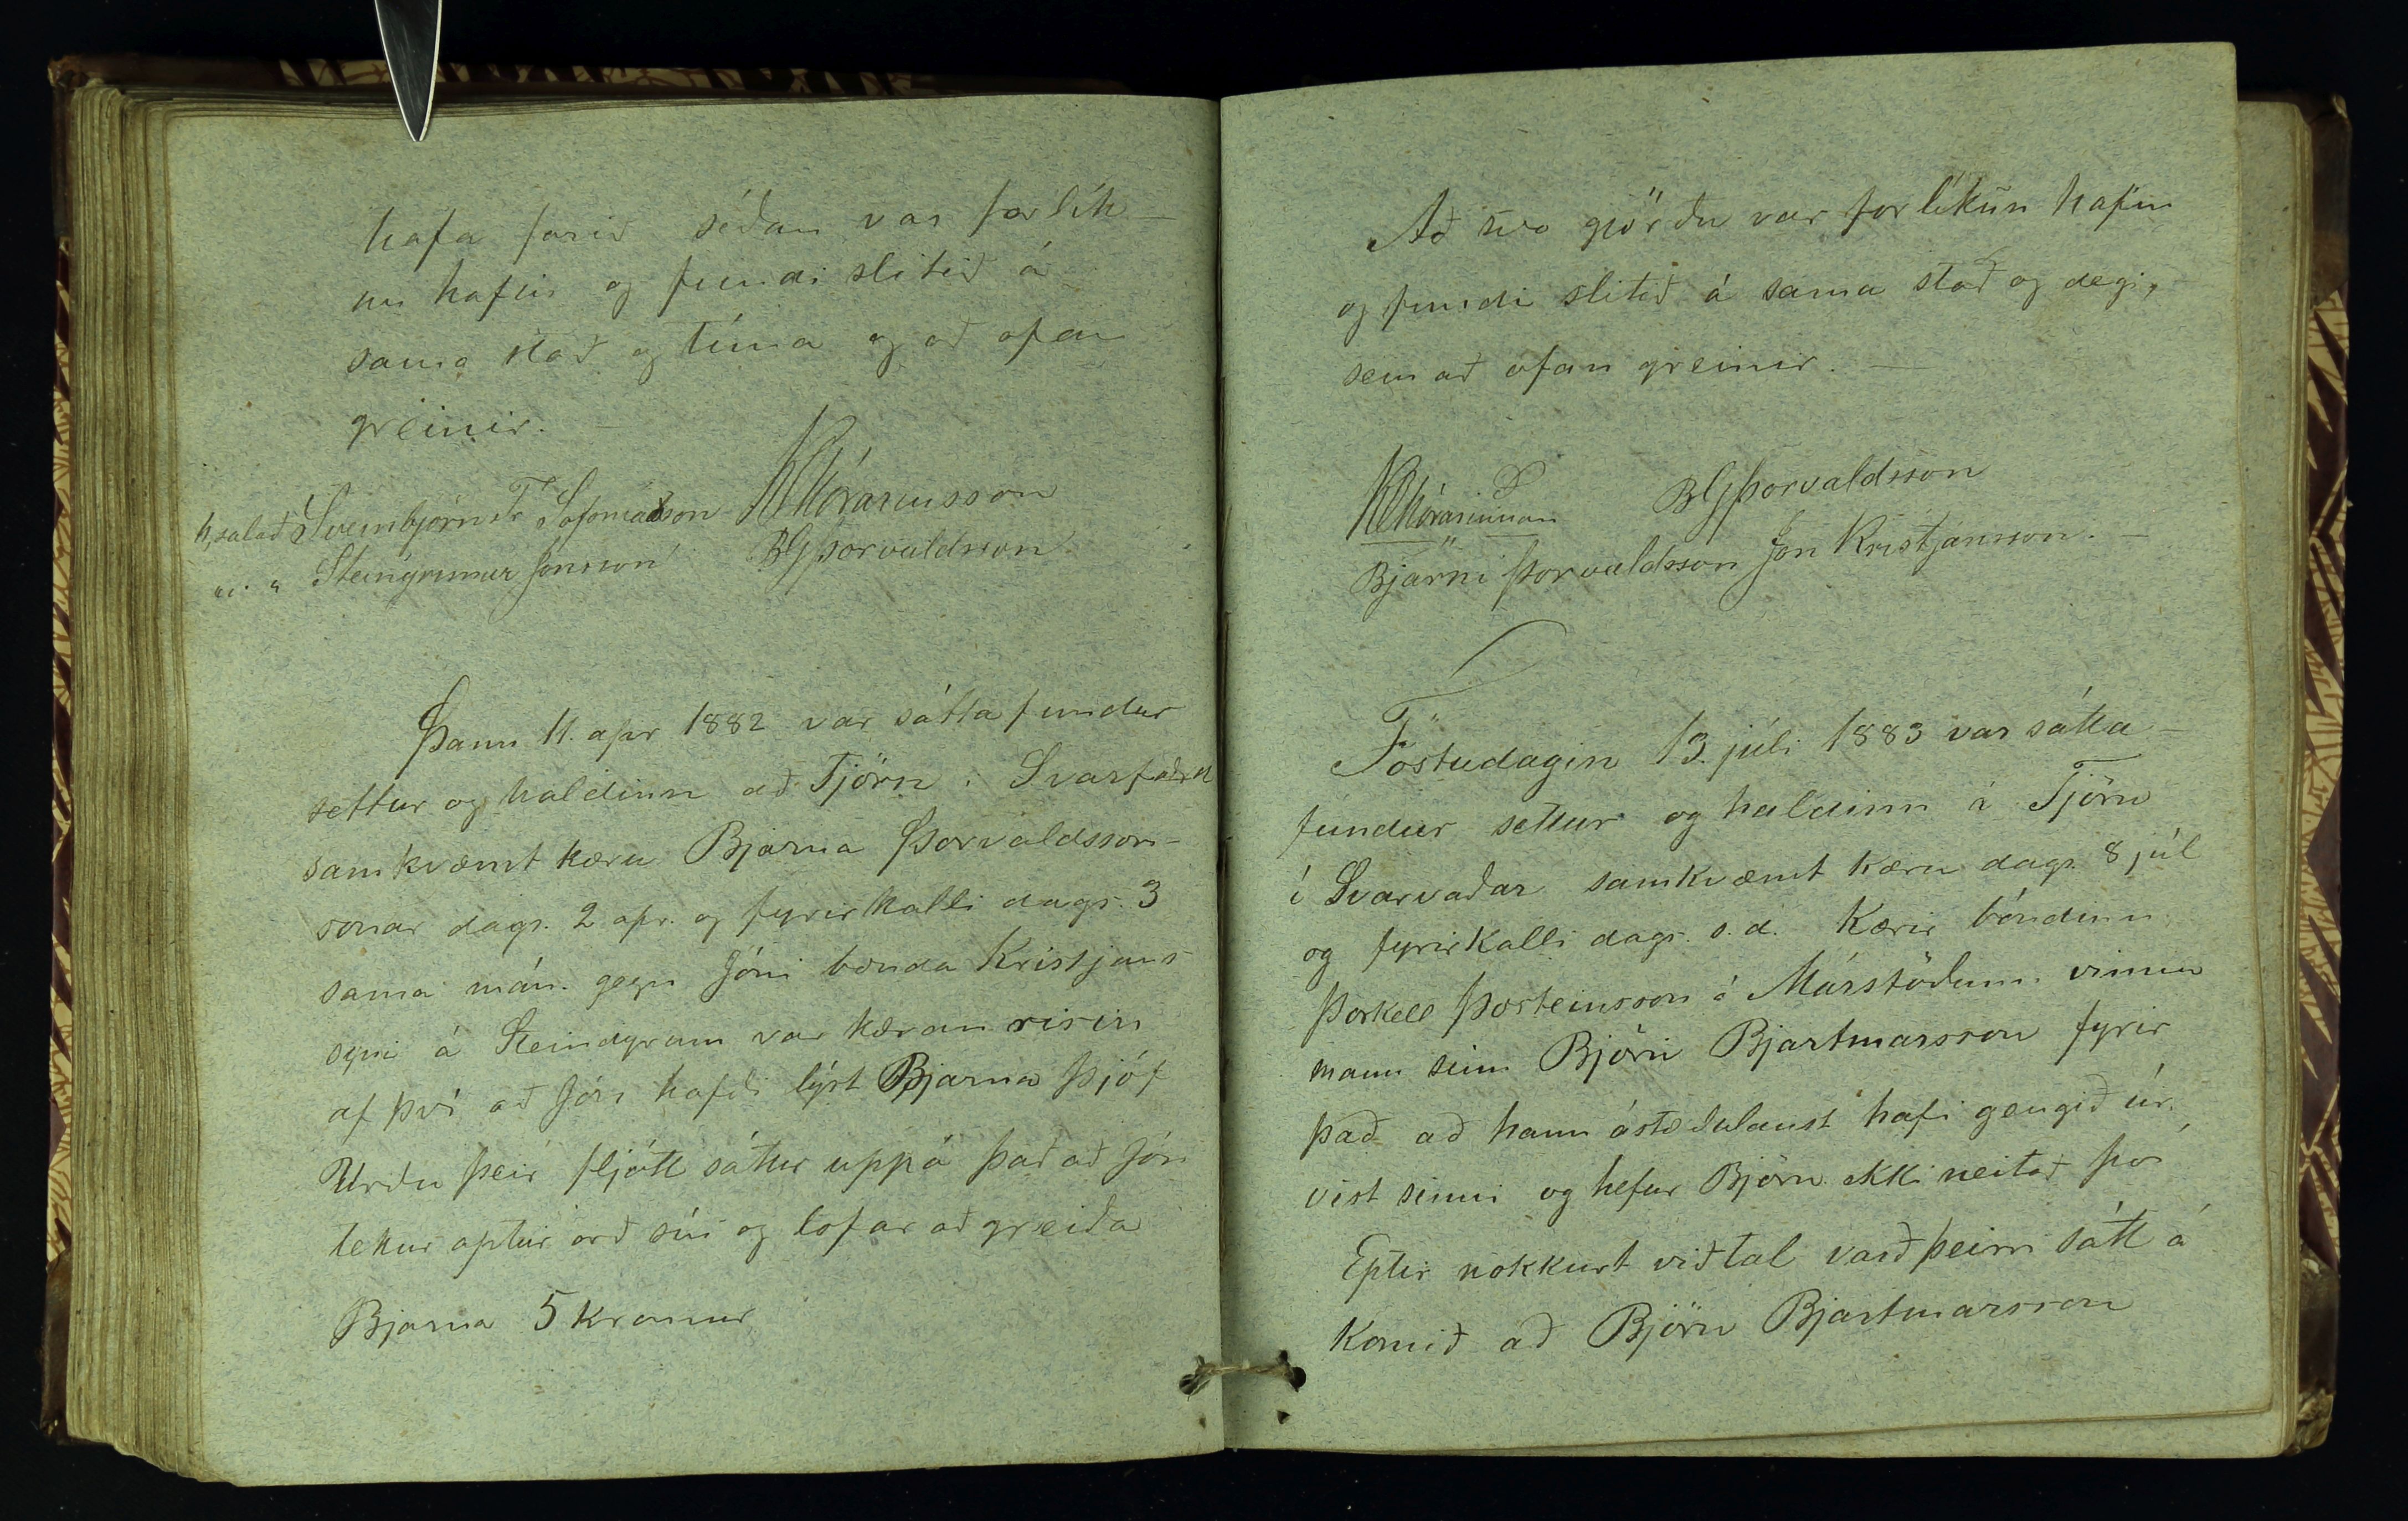 hafa farið síðan var forlík-
un hafin og fundi slitið á
sama stað og tíma og að ofan
greinir. —
h, salað Sveinbjörn Tr Sofoniasson KEÞórarinsson
" " " Steingrimur Jónsson BGÞorvaldsson
Þann 11. apr 1882 var sáttafundur
settur og haldinn að Tjörn í Svarfaðrd
samkvæmt kæru Bjarna Þorvaldsson-
sonar dags. 2 apr. og fyrirkalli dags. 3
sama mán. gegn Jóni bonda Kristjans
syni á Steindyrum var kæran risin
af því að Jón hafði lýst Bjarna þjóf
Urðu þeir fljótt sáttir uppá það að Jón
tekur aptur orð sín og lofar að greiða
Bjarna 5 kronur
Að svo gjörðu var forlíkun hafin
og fundi slitið á sama stað og degi,
sem að ofan greinir. —
KEÞórarinnson BGÞorvaldsson
Bjarni Þorvaldsson Jón Kristjánsson. —
Föstudagin 13. júli 1883 var sátta-
fundur settur og haldinn á Tjörn
í Svarvaðar samkvæmt kæru dags. 8 júl
og fyrirkalli dags. s.d. Kærir bóndinn
Þorkell Þorsteinsson á Márstöðum vinnu
mann sinn Björn Bjartmarsson fyrir
það að hann ástæðulaust hafi gengið úr
vist sinni og hefur Björn ekki neitað því
Eptir nokkurt viðtal varð þeirri sátt á
komið að Björn Bjartmarsson